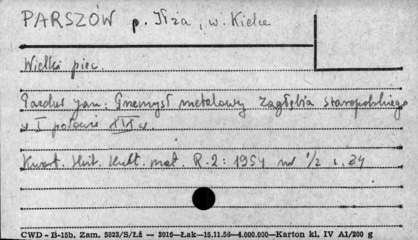 PARSZÓW p. Iłża, w. Kielce
Wielki piec.
Pazdur Jan: Przemysł metalowy Zagłębia staropolskiego
w I połowie XIX w.
Kwart. Hist. Kult. mat. R. 2: 1954 nr 1/2 s. 84
CWD - B-15b. Zam. 5823/S/Łż — 5016—Łak—15.11.56—4.000.000—Karton kl. IV A1/200 g